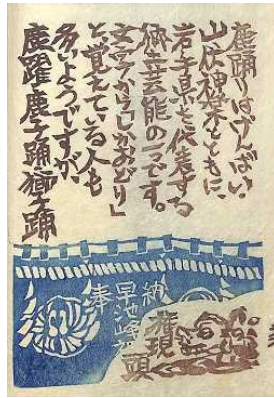 鹿踊りはけんばい
山伏神楽とともに、
岩手県を代表する
郷土芸能の一つです。
文字から「しかおどり」
と覚えている人も
多いようですが、
鹿躍・鹿子踊・獅子踊
奉
納
早池峰
権現
頭